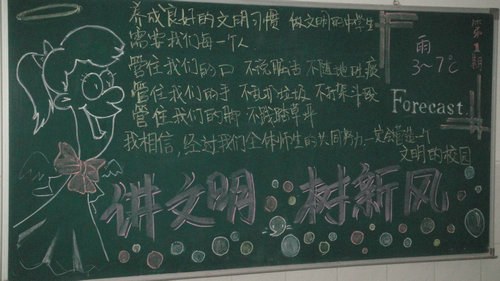 养成良好的文明习惯 做文明的中学生
需要我们每一个人
管住我们的口 不说脏话 不随地吐痰
管住我们的手 不乱扔垃圾 不打架斗殴
管住我们的脚 不践踏草坪
我相信,经过我们全体师生的共同努力,一定会营造一个
文明的校园
第1期
雨
3~7℃
Forecast
讲文明 树新风